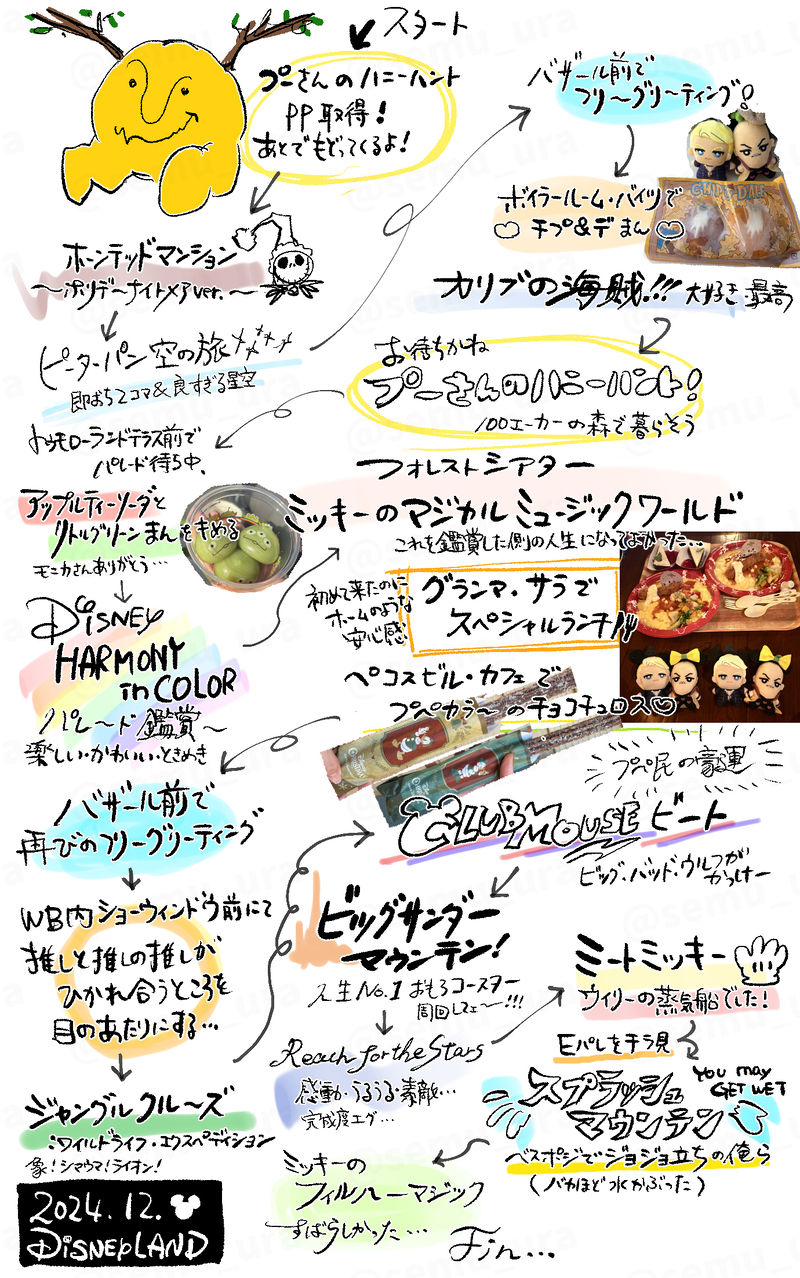 スタート
プーさんのハニーハント
PP取得！
あとでもどってくるよ！
ホーンテッドマンション
〜ホリデーナイトメアver.〜
ピーターパン空の旅
即おち2コマ&良すぎる星空
バザール前で
フリーグリーティング！
ボイラールーム・バイツで
♡チプ&デまん♡
CHIP DALE
カリブの海賊!!! 大好き最高
お待ちかね
プーさんのハニーハント！
100エーカーの森で暮らそう
トゥモローランドテラス前で
パレード待ち中、
アップルティーソーダと
リトルグリーンまんをきめる
モニカさんありがとう…
DISNEY
HARMONY
in COLOR
パレード鑑賞〜
楽しい・かわいい・ときめき
フォレストシアター
ミッキーのマジカルミュージックワールド
これを鑑賞した側の人生になってよかった…
初めて来たのに
ホームのような
安心感
グランマ・サラで
スペシャルランチ!!
ペコスビル・カフェで
プペカラーのチョコチュロス♡
プペ民の豪運
バザール前で
再びのフリーグリーティング
WB内ショーウィンドウ前にて
推しと推しの推しが
ひかれ合うところを
目のあたりにする…
ジャングルクルーズ
:ワイルドライフ・エクスペディション
象！シマウマ！ライオン！
CLUB MOUSE ビート
ビッグ・バッド・ウルフが
かっけー
ビッグサンダー
マウンテン！
人生No.1おもろコースター
周回してェ〜!!!
Reach for the Stars
感動・うるうる・素敵…
完成度エグ…
ミートミッキー
ウィリーの蒸気船でした！
Eパレをチラ見
スプラッシュ
マウンテン
You may
GET WET
ベスポジでジョジョ立ちの俺ら
（バカほど水かぶった）
ミッキーの
フィルハーマジック
すばらしかった…
Fin…
2024.12.
DISNEPLAND
@semu_ura